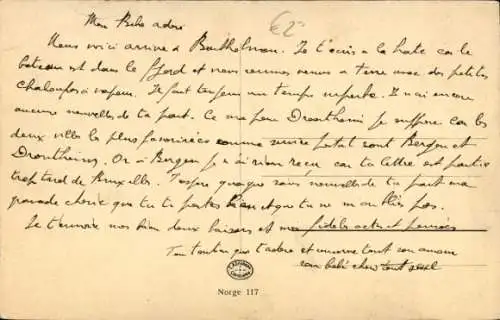 Mon Bébé adoré
€2-
Nous voici arrivé à . Je t'écris à la hâte car le
bateau est dans le fjord et nous sommes venus à terre avec des petites
chaloupes à vapeur. Il fait toujours un temps superbe. Je n'ai encore
aucune nouvelles de ta part. Ce sera pour Drontheim je suppose car les
deux villes la plus favorisées comme service postal sont Bergen et
Drontheim. Or à Bergen je n'ai rien reçu car ta lettre est partie
trop tard de Bruxelles. J'espère quoique sans nouvelles de ta part ma
grande chérie que tu te portes bien et que tu ne m'oublies pas.
Je t'envoie mes bien doux baisers et mes fidèles actes et pensées
Ton toutou que t'adore et envoie tout son amour
son bébé cher tout seul
Norge 117